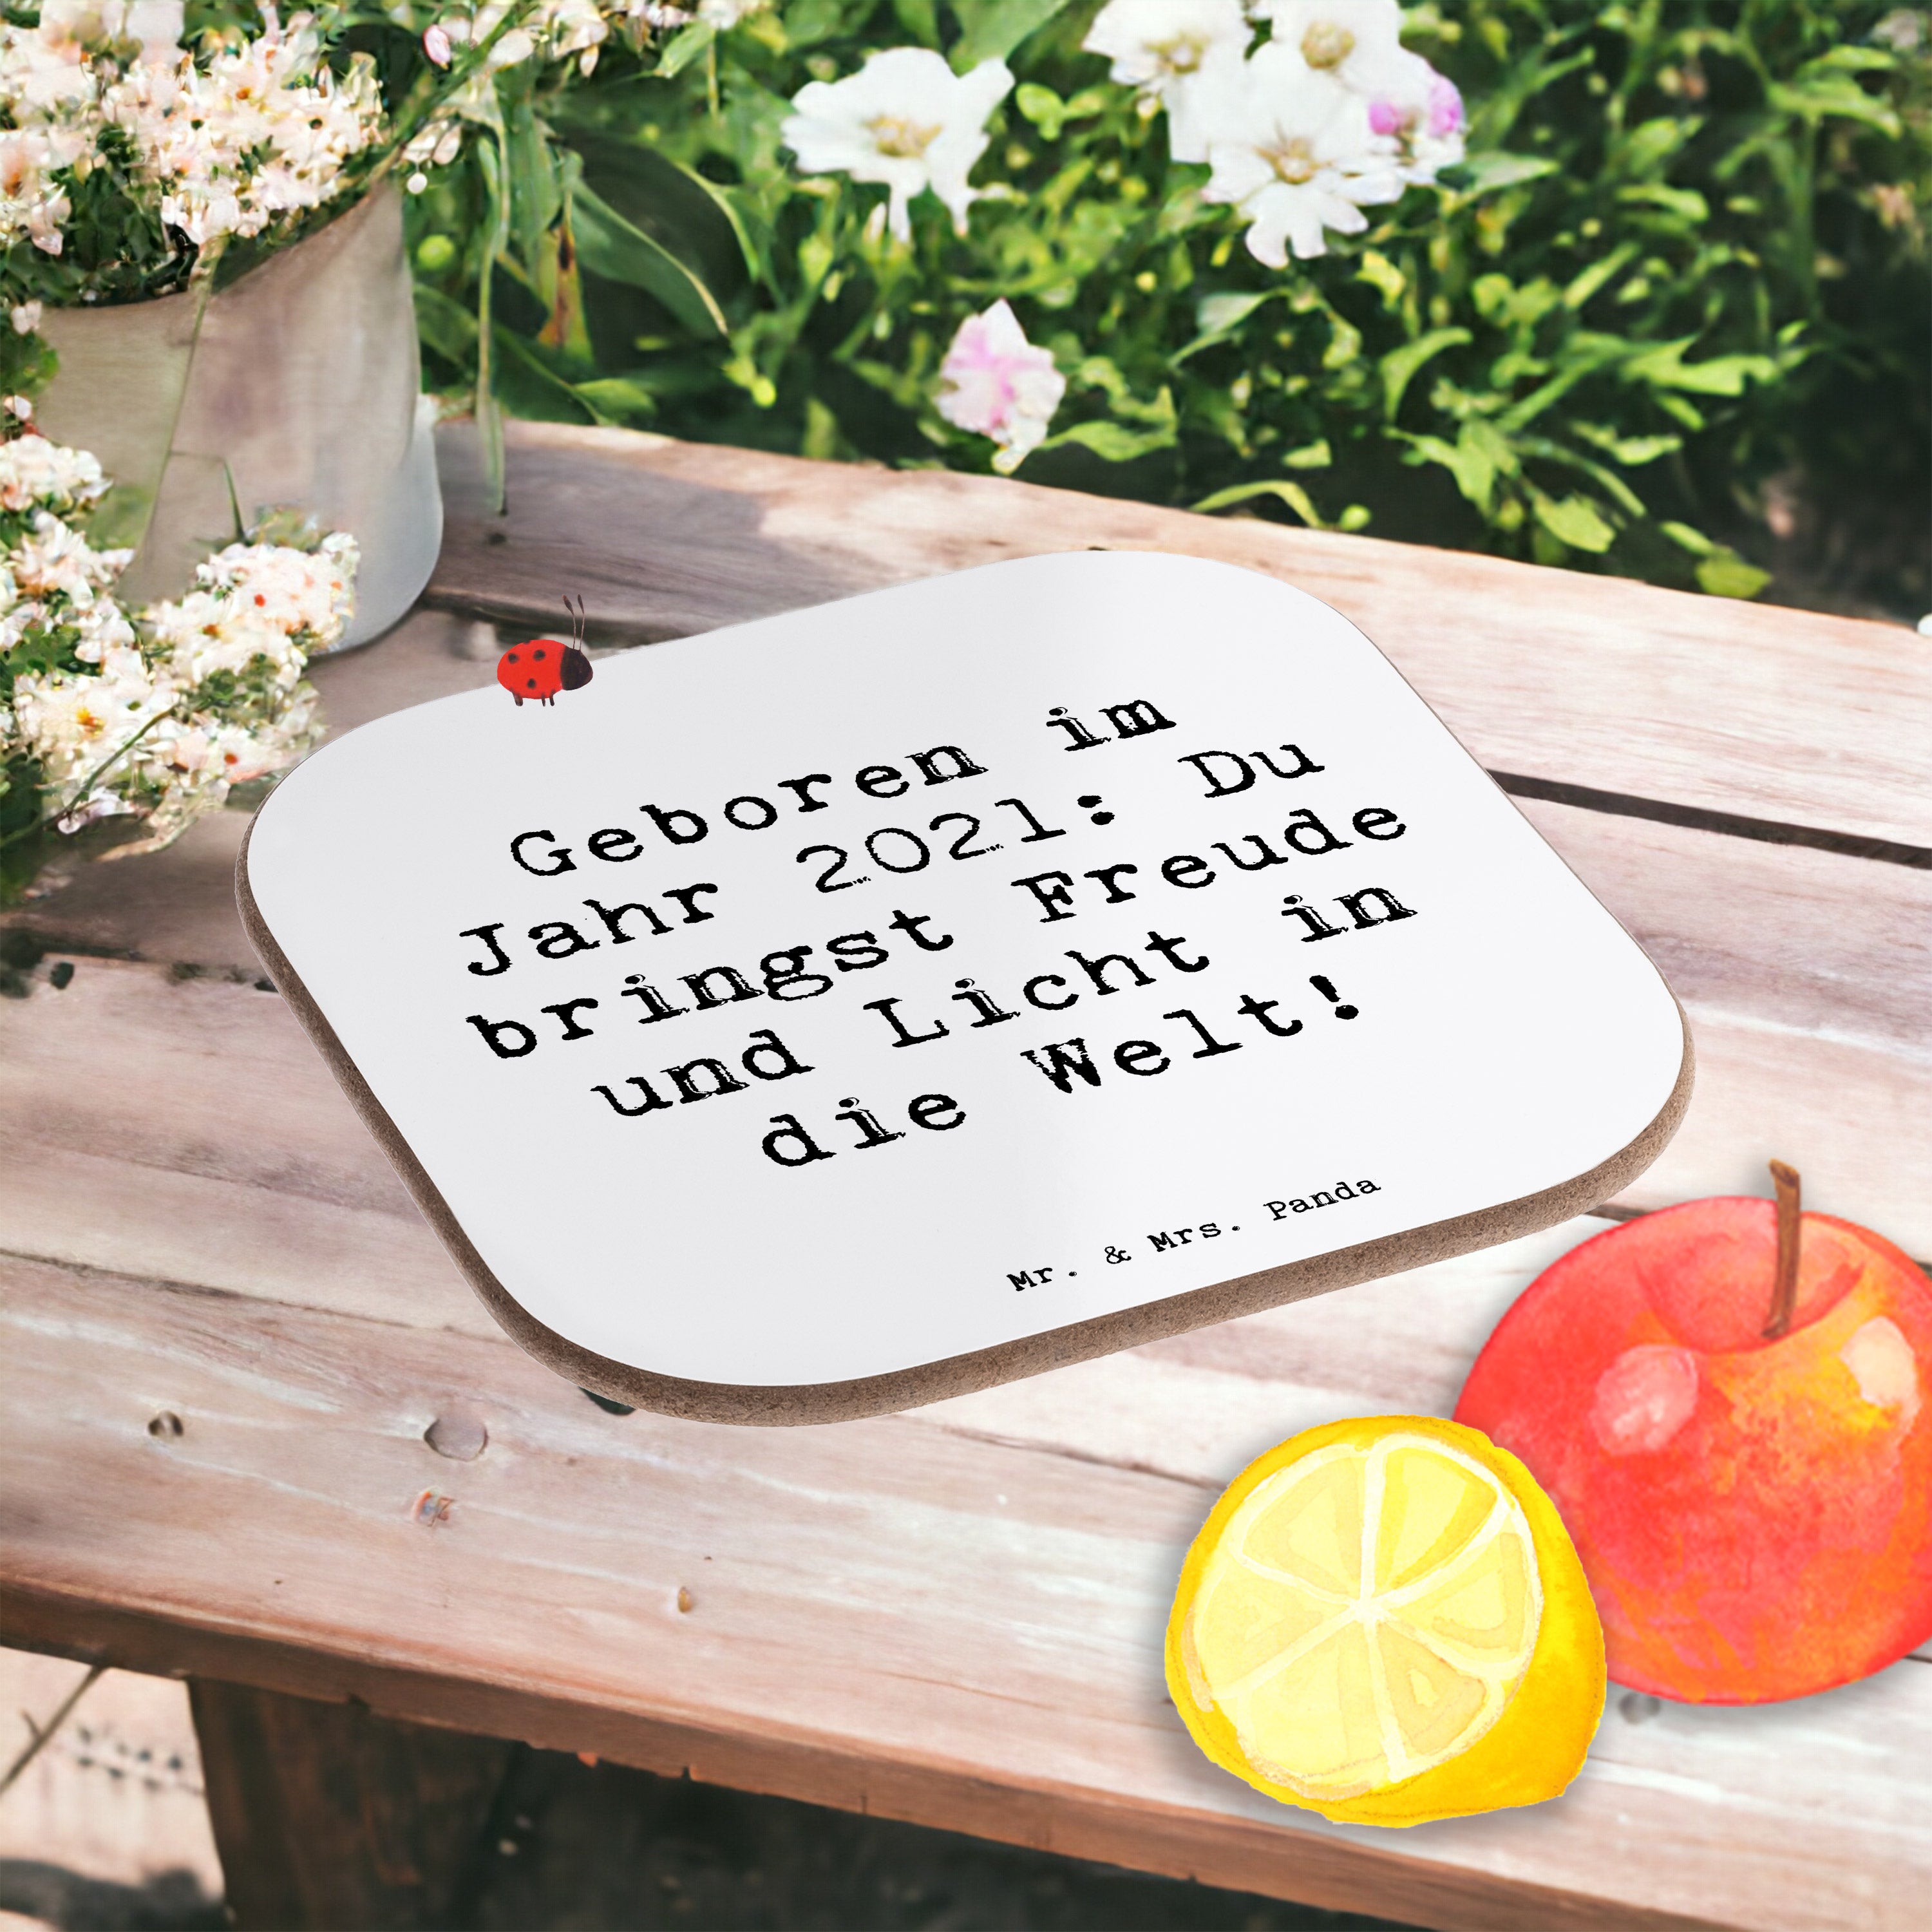 Geboren im
Jahr 2021: Du
bringst Freude
und Licht in
die Welt!
Mr. & Mrs. Panda